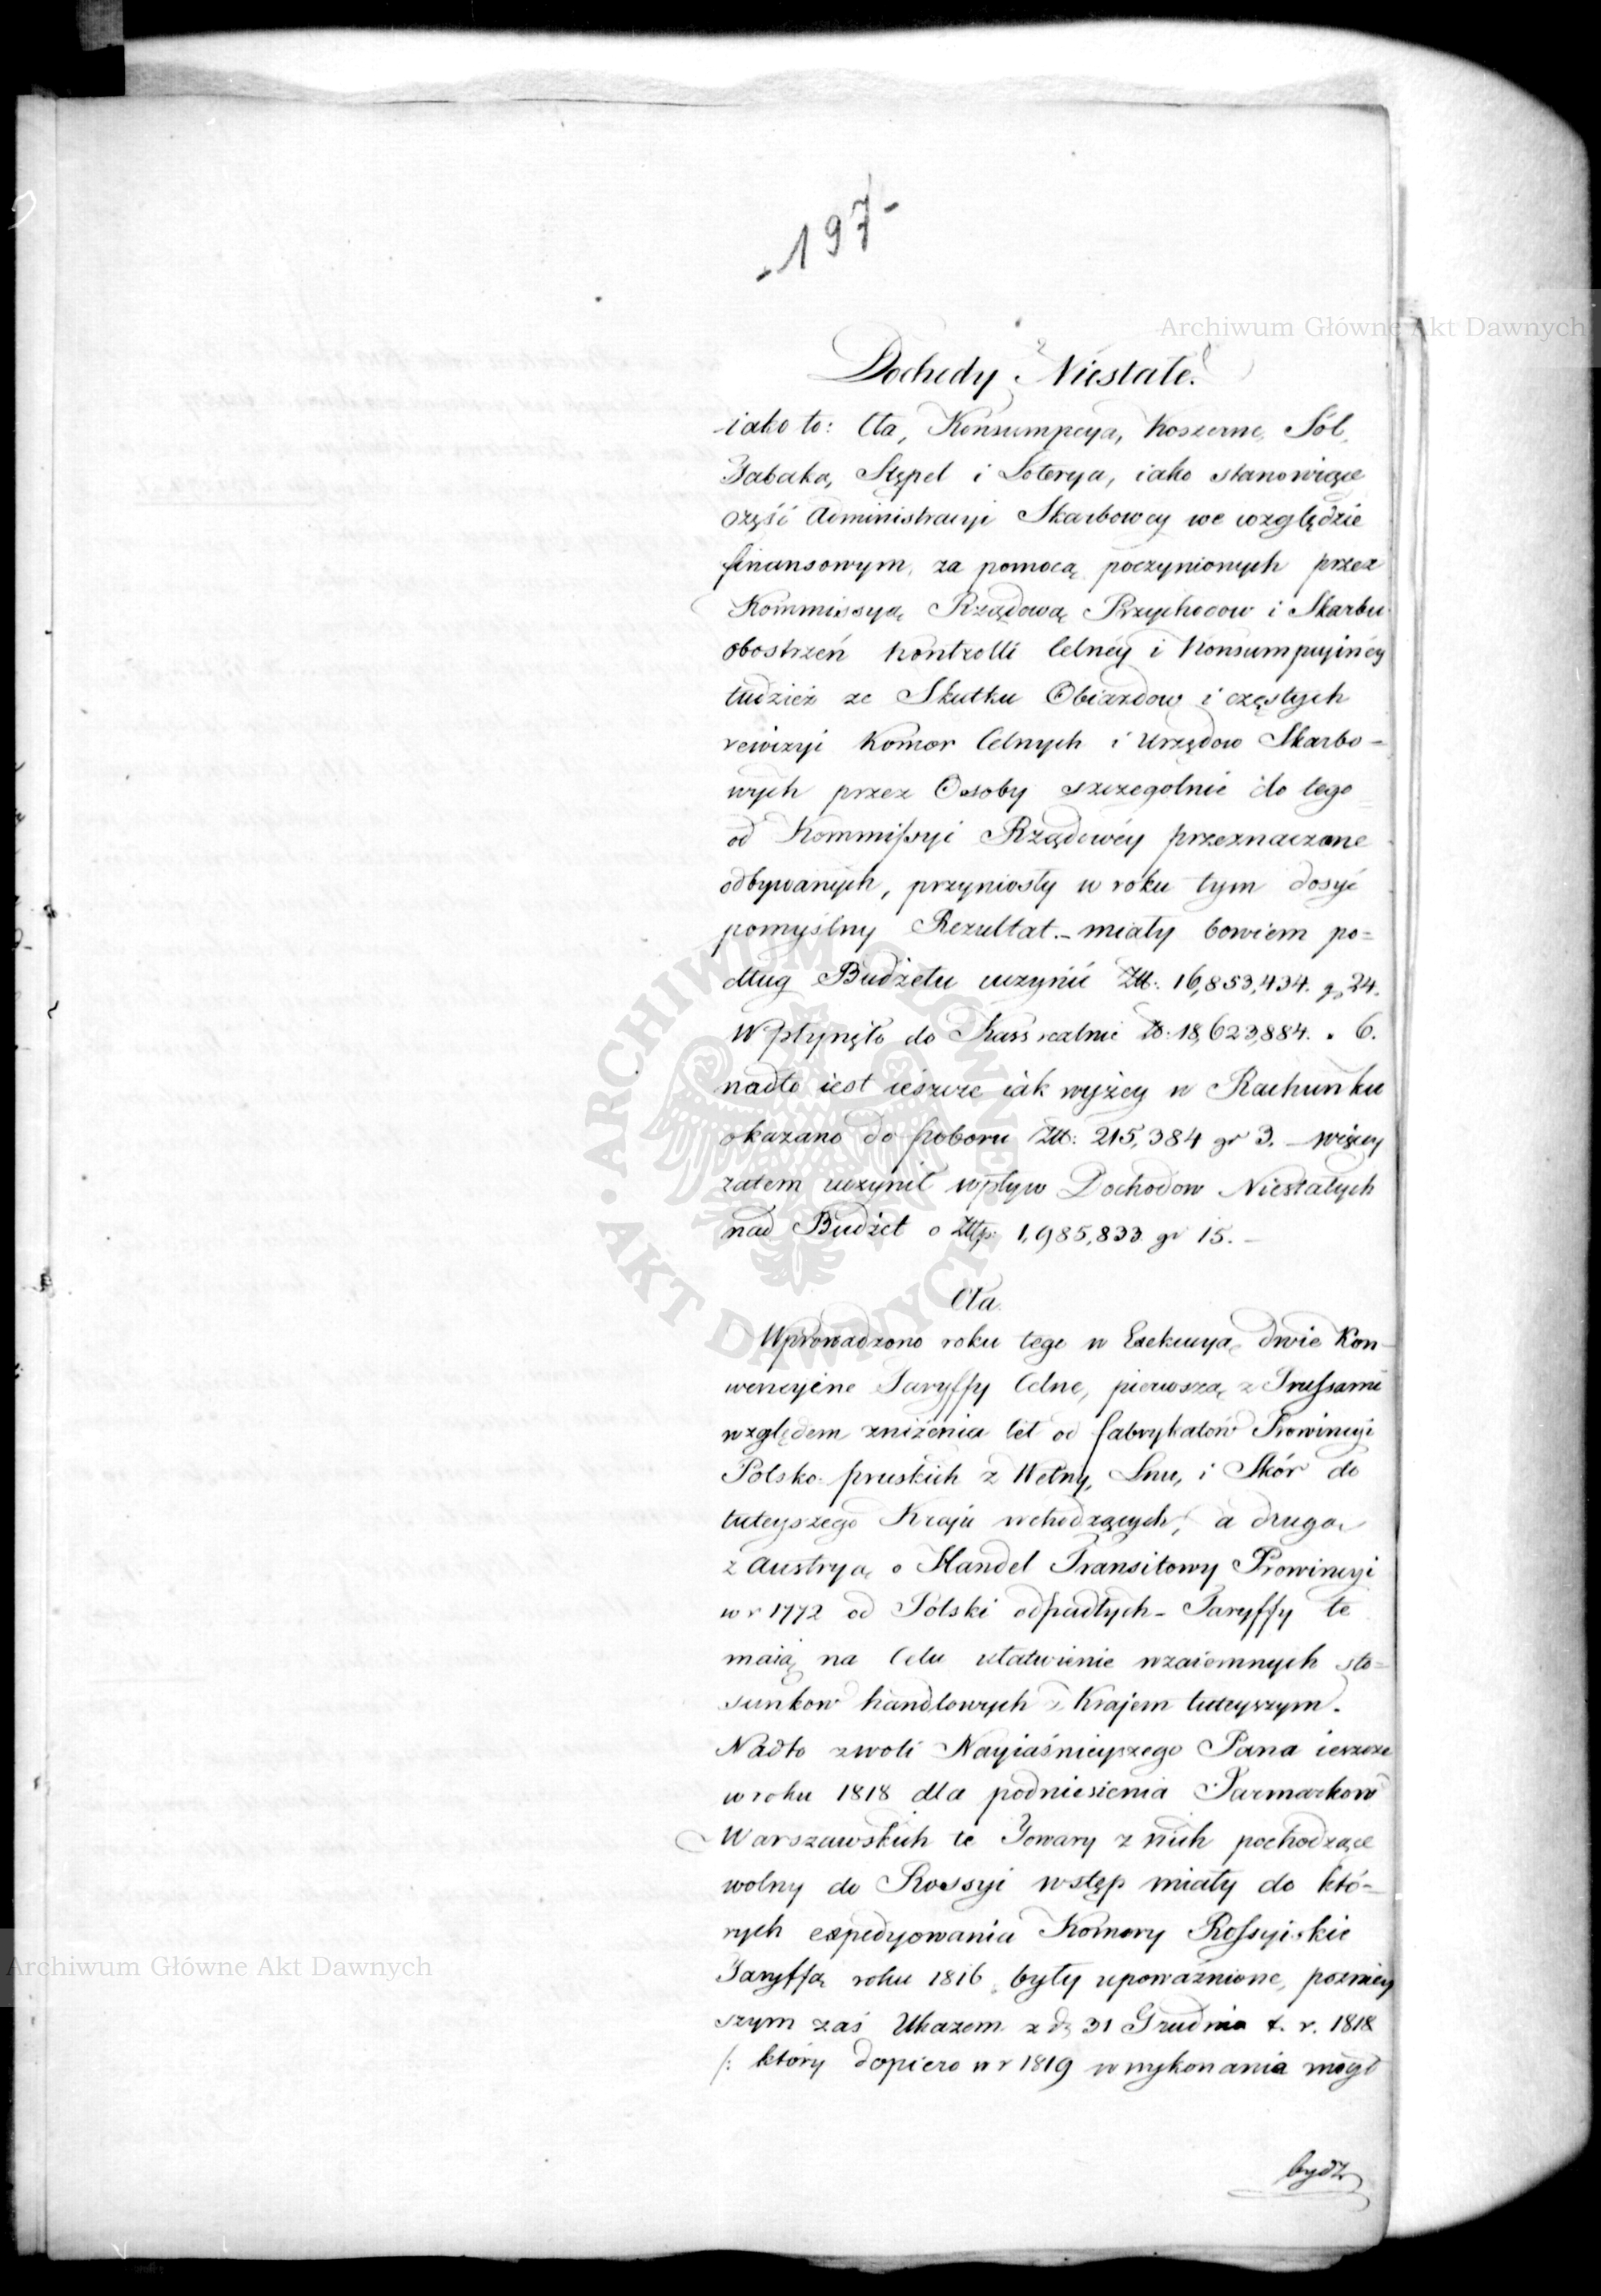 - 197 -
Archiwum Główne Akt Dawnych
Dochody Niestałe.
iako to: Cła, Konsumpcya, Koszerne, Sól,
Tabaka, Stępel i Loterya, iako stanowiące
część Administracyi Skarbowey we względzie
finansowym, za pomocą poczynionych przez
Kommissyą Rządową Przychodow i Skarbu
obostrzeń Kontrolli Celnéy i Konsumpcyinéy
tudzież ze Skutku Obiazdow i częstych
rewizyi Komor Celnych i Urzędow Skarbo-
wych przez Osoby szczegolnie do tego
od Kommissyi Rządowéy przeznaczone
odbywanych, przyniosły w roku tym dosyć
pomyślny Rezultat. - miały bowiem po=
dług Budżetu uczynić Złł: 16,853,434. gr 24.
Wpłynęło do Kass realnie Zł. 18,623,884. " 6.
nadto iest ieszcze iak wyżey w Rachunku
okazano do poboru Złł: 215,384 gr 3. - więcey
zatem uczynił wpływ Dochodow Niestałych
nad Budżet o Złłp: 1,985,833 gr 15. -
Cła.
Wprowadzono roku tego w Exekucyą dwie Kon-
wencyine Taryffy Celne, pierwszą z Prussami
względem zniżenia Ceł od fabrykatów Prowincyi
Polsko-pruskich z Wełny, Lnu, i Skór do
tuteyszego Kraju wchodzących, a drugą
z Austryą o Handel Transitowy Prowincyi
w r 1772 od Polski odpadłych - Taryffy te
maią na Celu ułatwienie wzaiemnych sto=
sunkow handlowych z Krajem tuteyszym.
Nadto zwoli Nayiaśnieyszego Pana ieszcze
w roku 1818 dla podniesienia Jarmarkow
Warszawskich te Towary z nich pochodzące
wolny do Rossyi wstęp miały do któ-
rych expedyowania Komory Rossyiskie
Taryffą roku 1816 były upoważnione, pozniey
szym zaś Ukazem z d. 31 Grudnia t. r. 1818
/: który dopiero w r 1819 w wykonania mógł
bydź
Archiwum Główne Akt Dawnych
ARCHIWUM GŁÓWNE · AKT DAWNYCH ·